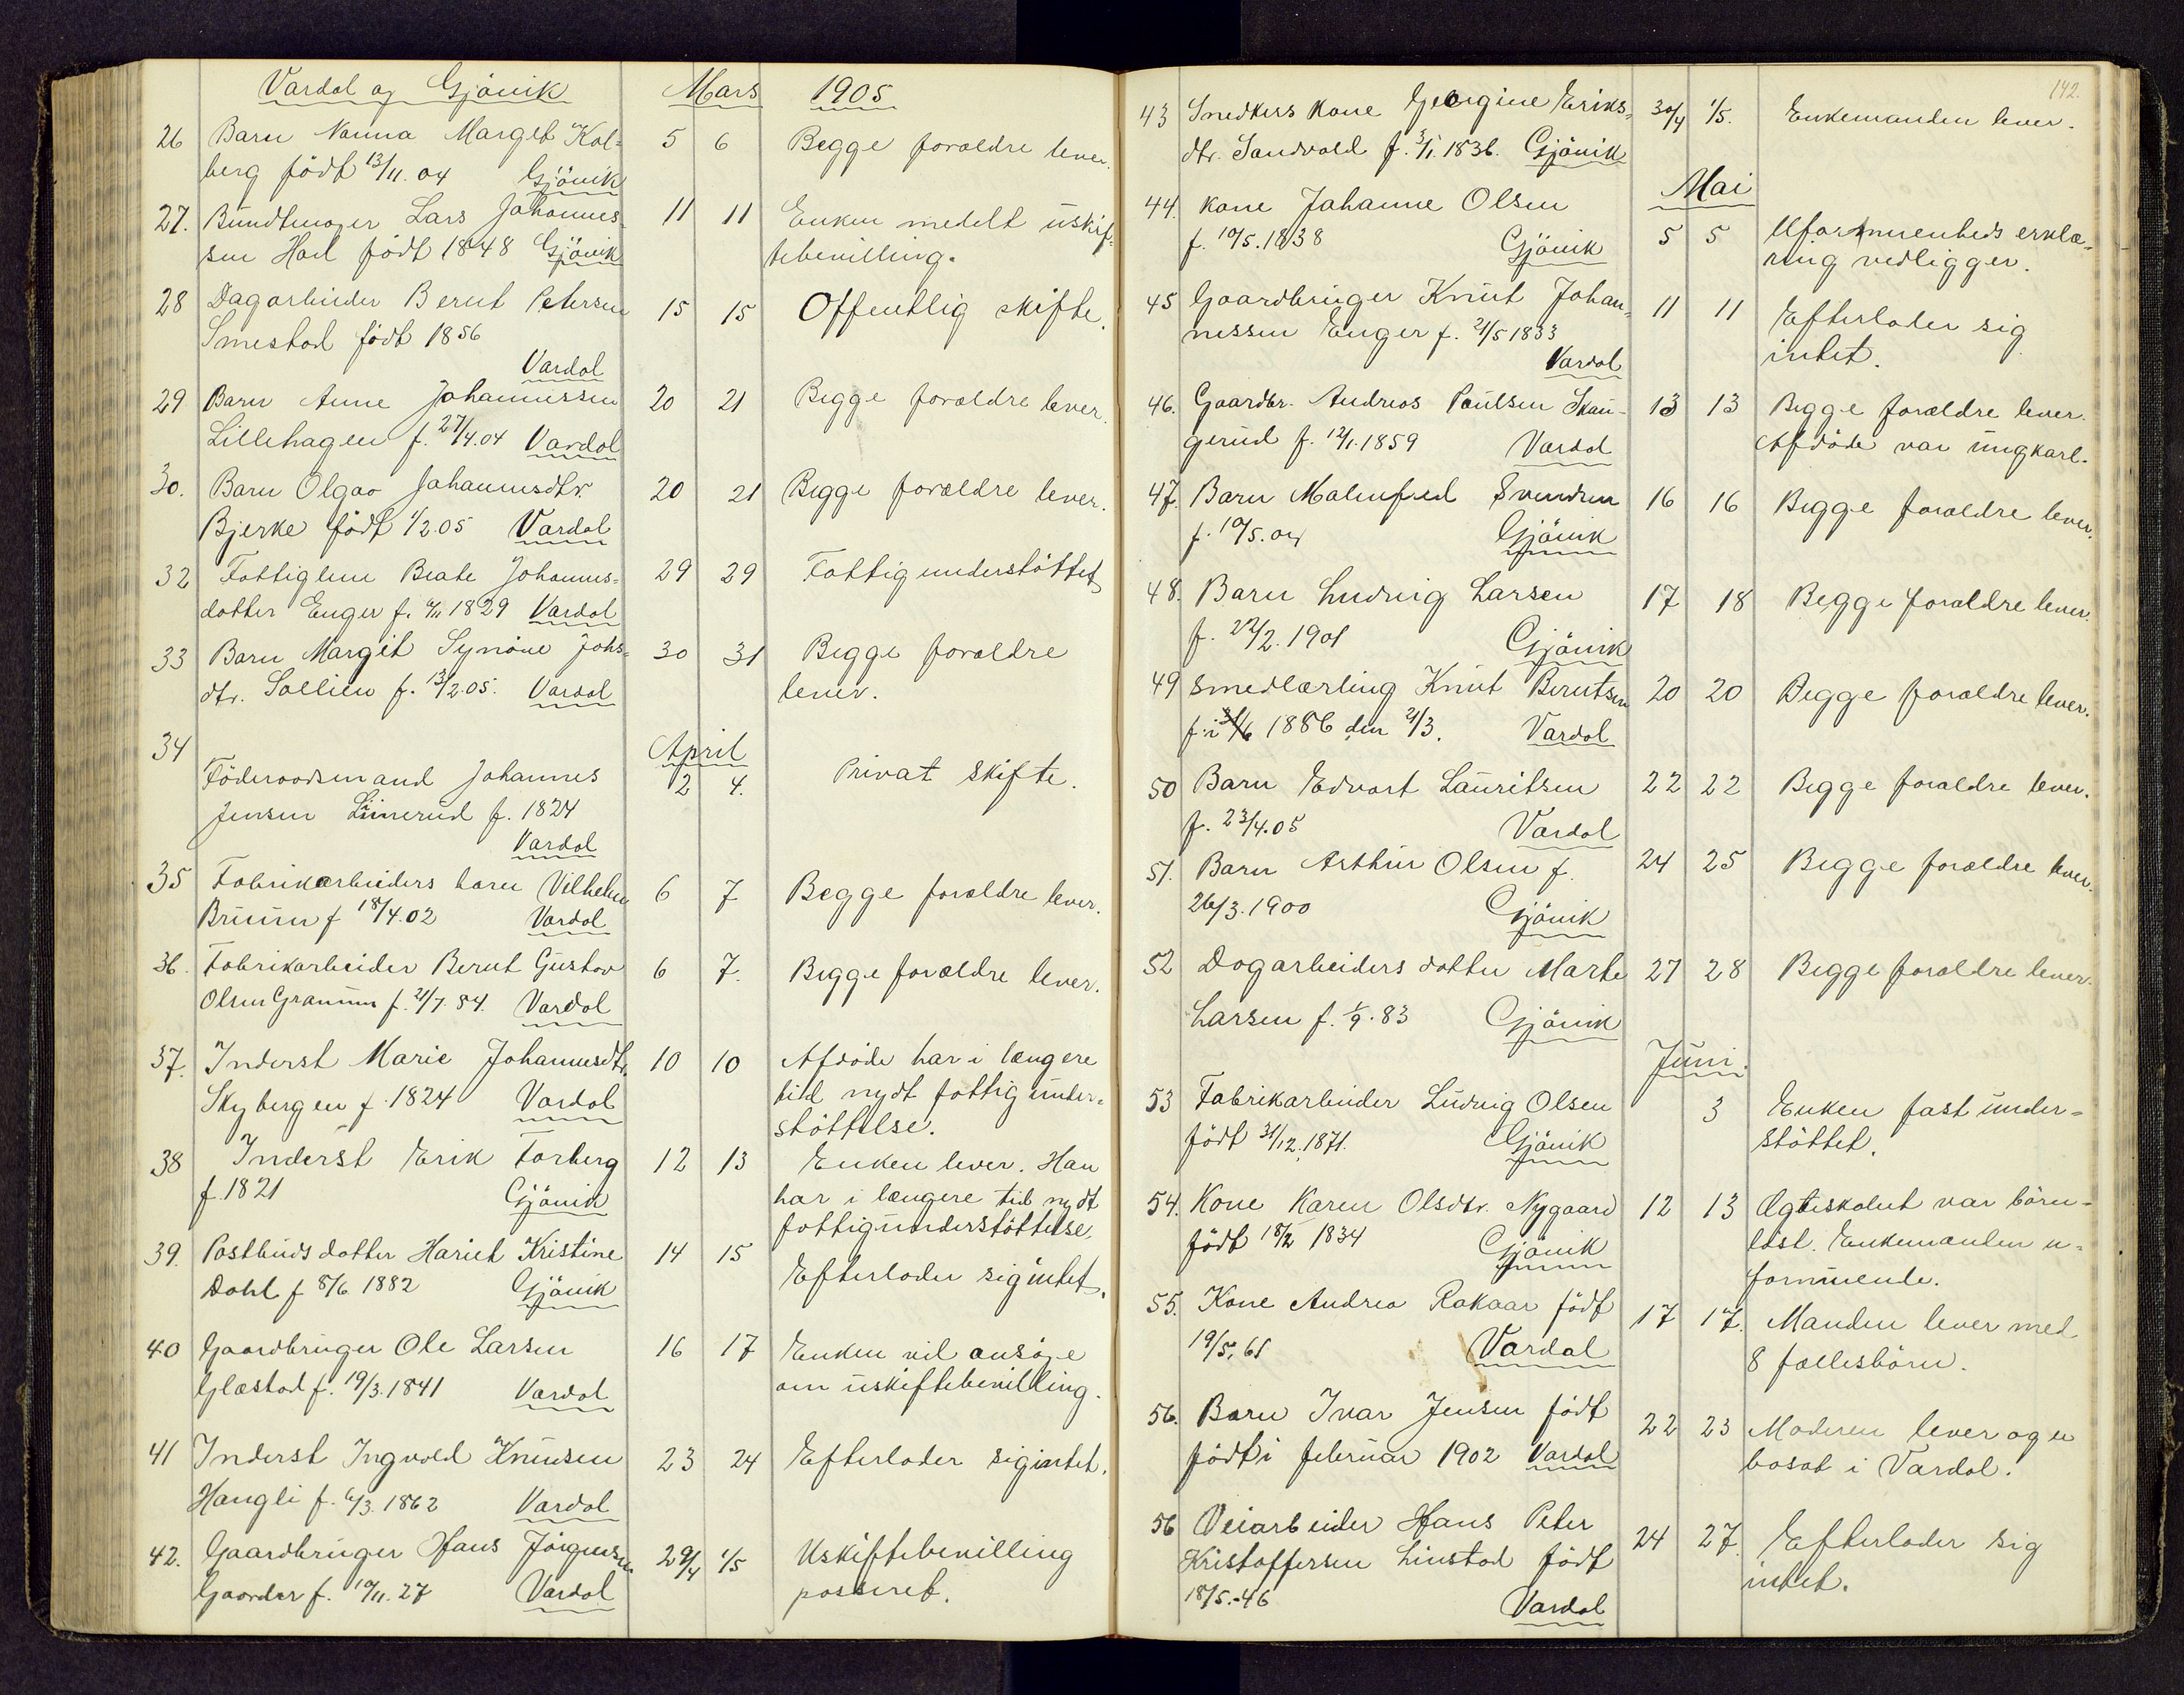 Vardal og Gjövik Mars 1905
26 Barn Nanna Marget Kol= 5 6 Begge forældre lever.
berg født 13/11.04 Gjövik
27. Lars Johannes= 11 11 Enken meddelt uskif=
sen født 1848 Gjövik tebevilling.
28 Dagarbeider Bernt Petersen 15 15 Offentlig skifte.
Smestad født 1856
Vardal
29 Barn Anne Johannessen 20 21 Begge forældre lever.
Lillehagen f. 27/4.04 Vardal
30. Barn Olgaa Johannesdtr. 20 21 Begge forældre lever.
Bjerke født 1/2.05 Vardal
32 Fattiglem Beate Johannes= 29 29 Fattigunderstöttet
datter Enger f. 1829 Vardal
33 Barn Margit Synöve Johs= 30 31 Begge forældre
dtr. Sollien f. 13/2.05. Vardal lever.
34 April
Föderaadsmand Johannes 2 4. Privat skifte.
Jensen f. 1824
Vardal
35 Fabrikarbeiders barn Vilhelm 6 7 Begge forældre lever.
Bruun f 18/4.02 Vardal
36. Fabrikarbeider Bernt Gustav 6 7. Begge forældre lever.
Olsen Granum f. 21/7.84. Vardal
37. Inderst Marie Johannesdtr. 10 10 Afdöde har i længere
Skybergen f. 1824 Vardal tid nydt fattigunder=
stöttelse.
38 Inderst Erik Forberg 12 13 Enken lever. Han
f. 1821 Gjövik har i længere tid nydt
fattigunderstöttelse.
39. Postbuds datter Hariet Kristine 14 15
Dahl f 8/6 1882 Gjövik Efterlader sig intet.
40 Gaardbruger Ole Larsen 16 17 Enken vil ansöge
Glæstad f. 19/3.1841 Vardal om uskiftebevilling.
41 Inderst Ingvald Knudsen 23 24 Efterlader sig intet.
Haugli f. 6/3.1862 Vardal
42. Gaardbruger Hans Jörgensen 29/4 1/5 Uskiftebevilling
Gaarder f. 10/11.27 Vardal passeret.
142.
43 Snedkers kone Georgine Eriks= 30/4 1/5. Enkemanden lever.
dtr. Sandvold f. 3/1.1836. Gjövik
Mai
44. Kone Johanne Olsen
f. 10/5.1838 Gjövik 5 5 Uformuenheds erklæ=
ring vedligger.
45 Gaardbruger Knut Johan= 11 11 Efterlader sig
nessen Enger f. 21/5 1833 intet.
Vardal
46. Gaardbr. Andreas Paulsen Skau= 13 13 Begge forældre lever.
gerud f. 12/1.1859 Vardal Afdöde var ungkarl.
47. Barn Malmfred Svendsen 16 16 Begge forældre lever.
f. 10/5.04 Gjövik
48. Barn Ludvig Larsen 17 18 Begge forældre lever.
f. 22/2.1901 Gjövik
49 Smedlærling Knut Berntsen 20 20 Begge forældre lever.
f. i 1886 den 21/3. Vardal
50 Barn Edvart Lauritsen 22 22 Begge forældre lever.
f. 23/4.05 Vardal
51. Barn Arthur Olsen f. 24 25 Begge forældre lever.
26/3.1900 Gjövik
52 Dagarbeiders datter Marte 27 28 Begge forældre lever.
Larsen f. 1/9.83 Gjövik
Juni.
53 Fabrikarbeider Ludvig Olsen 3 Enken fast under=
född 31/12.1871. Gjövik stöttet.
54. Kone Karen Olsdtr. Nygaard 12 13 Ægteskabet var börn=
född 18/2 1834 Gjövik löst. Enkemanden u=
formuende.
55. Kone Andrea Rakaar född 17 17. Manden lever med
19/5.61 Vardal 8 fællesbörn.
56. Barn Ivar Jensen född 22 23 Moderen lever og er
född i februar 1902 Vardal bosat i Vardal.
56 Veiarbeider Hans Peter 24 27. Efterlader sig
Kristoffersen Linstad född intet.
18/5.-46 Vardal